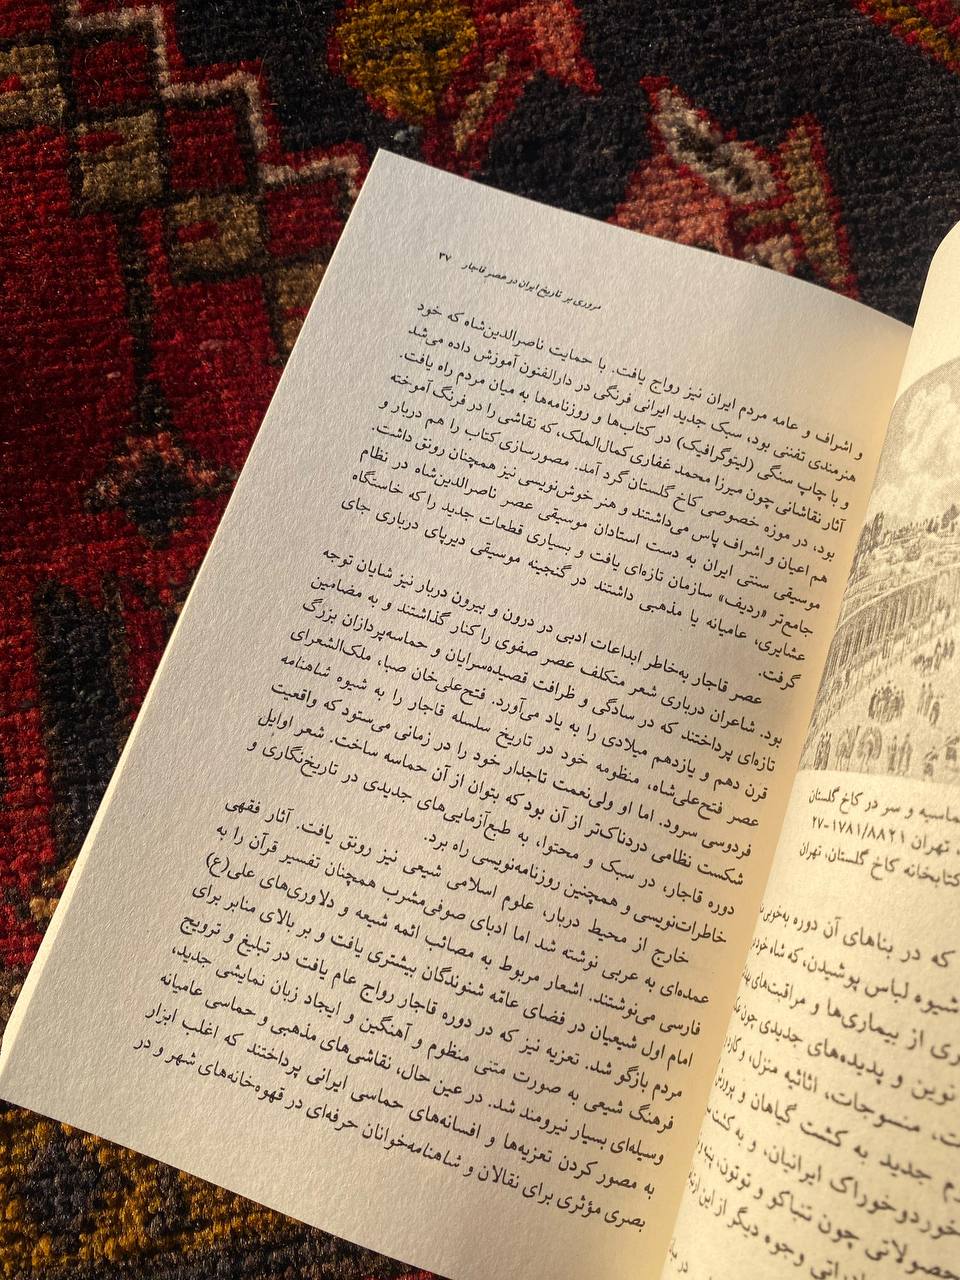 مروری بر تاریخ ایران در عصر قاجار ۳۷
و اشراف و عامه مردم ایران نیز رواج یافت. با حمایت ناصرالدین‌شاه که خود
هنرمندی تفننی بود، سبک جدید ایرانی فرنگی در دارالفنون آموزش داده می‌شد
و با چاپ سنگی (لیتوگرافیک) در کتاب‌ها و روزنامه‌ها به میان مردم راه یافت.
آثار نقاشانی چون میرزا محمد غفاری کمال‌الملک، که نقاشی را در فرنگ آموخته
بود، در موزه خصوصی کاخ گلستان گرد آمد. مصورسازی کتاب را هم دربار و
هم اعیان و اشراف پاس می‌داشتند و هنر خوش‌نویسی نیز همچنان رونق داشت.
موسیقی سنتی ایران به دست استادان موسیقی عصر ناصرالدین‌شاه در نظام
جامع‌تر «ردیف» سازمان تازه‌ای یافت و بسیاری قطعات جدید را که خاستگاه
عشایری، عامیانه یا مذهبی داشتند در گنجینه موسیقی دیرپای درباری جای
گرفت.
عصر قاجار به‌خاطر ابداعات ادبی در درون و بیرون دربار نیز شایان توجه
بود. شاعران درباری شعر متکلف عصر صفوی را کنار گذاشتند و به مضامین
تازه‌ای پرداختند که در سادگی و ظرافت قصیده‌سرایان و حماسه‌پردازان بزرگ
قرن دهم و یازدهم میلادی را به یاد می‌آورد. فتح‌علی‌خان صبا، ملک‌الشعرای
عصر فتح‌علی‌شاه، منظومه خود در تاریخ سلسله قاجار را به شیوه شاهنامه
فردوسی سرود. اما او ولی‌نعمت تاجدار خود را در زمانی می‌ستود که واقعیت
شکست نظامی دردناک‌تر از آن بود که بتوان از آن حماسه ساخت. شعر اوایل
دوره قاجار، در سبک و محتوا، به طبع‌آزمایی‌های جدیدی در تاریخ‌نگاری و
خاطرات‌نویسی و همچنین روزنامه‌نویسی راه برد.
خارج از محیط دربار، علوم اسلامی شیعی نیز رونق یافت. آثار فقهی
عمده‌ای به عربی نوشته شد اما ادبای صوفی‌مشرب همچنان تفسیر قرآن را به
فارسی می‌نوشتند. اشعار مربوط به مصائب ائمه شیعه و دلاوری‌های علی(ع)
امام اول شیعیان در فضای عامّه شنوندگان بیشتری یافت و بر بالای منابر برای
مردم بازگو شد. تعزیه نیز که در دوره قاجار رواج عام یافت در تبلیغ و ترویج
فرهنگ شیعی به صورت متنی منظوم و آهنگین و ایجاد زبان نمایشی جدید،
وسیله‌ای بسیار نیرومند شد. در عین حال، نقاشی‌های مذهبی و حماسی عامیانه
به مصور کردن تعزیه‌ها و افسانه‌های حماسی ایرانی پرداختند که اغلب ابزار
بصری مؤثری برای نقالان و شاهنامه‌خوانان حرفه‌ای در قهوه‌خانه‌های شهر و در
و سر در کاخ گلستان
تهران ۲۷-۱۷۸۱/۸۸۲۱
کتابخانه کاخ گلستان، تهران
که در بناهای آن دوره
شیوه لباس پوشیدن، که شاه
از بیماری‌ها و مراقبت‌های
نوین و پدیده‌های جدیدی چون
منسوجات، اثاثیه منزل،
جدید به کشت گیاهان و پرورش
خورد و خوراک ایرانیان، و به کشت
چون تنباکو و توتون،
وجوه دیگر از این
در